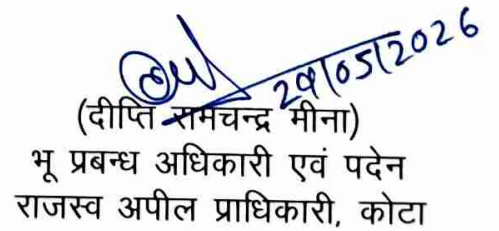 29/05/2026
(दीप्ति रामचन्द्र मीना)
भू प्रबन्ध अधिकारी एवं पदेन
राजस्व अपील प्राधिकारी, कोटा